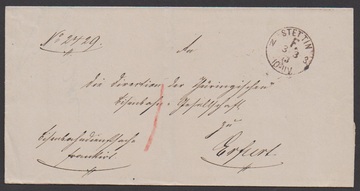 No 2429.
STETTIN
An
die Direction der Thüringischen
Eisenbahn-Gesellschaft
zu
Erfurt.
Eisenbahndienstsache
frankirt